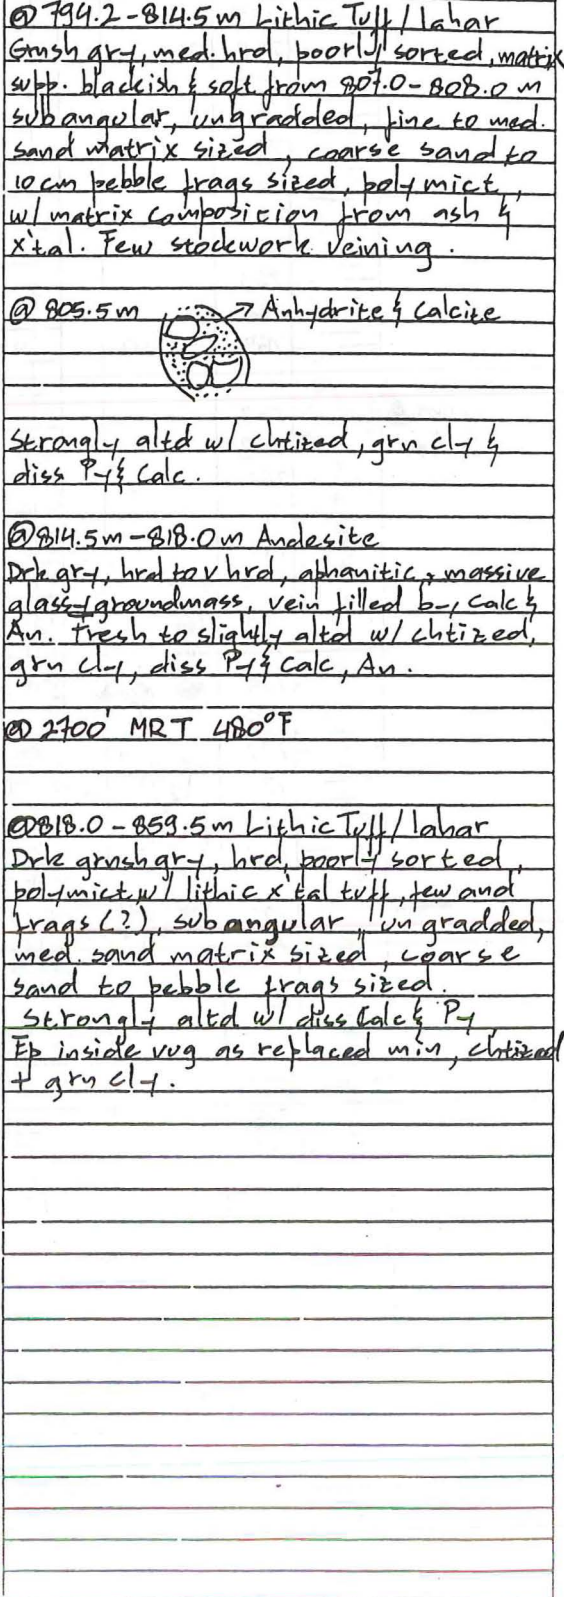 @ 794.2-814.5 m Lithic Tuff / lahar
Grnsh gry, med. hrd, poorly sorted, matrix
supp. blackish & soft from 807.0-808.0 m
subangular, ungradded, fine to med.
sand matrix sized, coarse sand to
10 cm pebble frags sized, polymict,
w/ matrix composition from ash &
x'tal. Few stockwork veining.
@ 805.5 m → Anhydrite & Calcite
Strongly altd w/ chtized, grn cly &
diss Py & Calc.
@ 814.5m-818.0m Andesite
Drk gry, hrd to v hrd, aphanitic, massive
glassy groundmass, vein filled by Calc &
An. Fresh to slightly altd w/ chtized,
grn cly, diss Py & Calc, An.
@ 2700' MRT 480°F
@ 818.0-859.5m Lithic Tuff / lahar
Drk grnsh gry, hrd, poorly sorted,
polymict, w/ lithic x'tal tuff, few and
frags (?), subangular, ungradded,
med. sand matrix sized, coarse
sand to pebble frags sized.
Strongly altd w/ diss Calc & Py,
Ep inside vug as replaced min, chtized
+ grn cly.